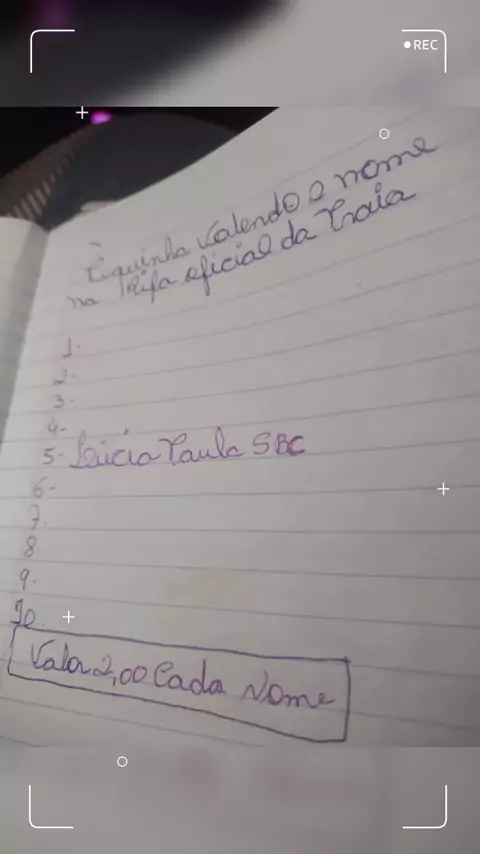 REC
Riquinha Valendo 2 nome
na Rifa oficial da Praia
1-
2-
3-
4-
5- Lúcia Paula SBC
6-
7-
8
9.
10.
Valor 2,00 Cada Nome